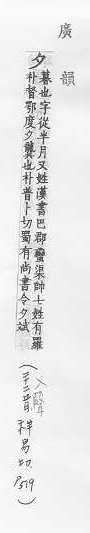 廣韻
夕
暮也字從半月又姓漢書巴郡蠻渠帥七姓有羅
朴督鄂度夕龔也朴普卜切蜀有尚書令夕斌
(入聲
二十二昔 祥易切 P519)